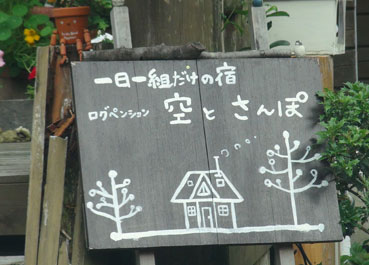 一日一組だけの宿
ログペンション 空とさんぽ